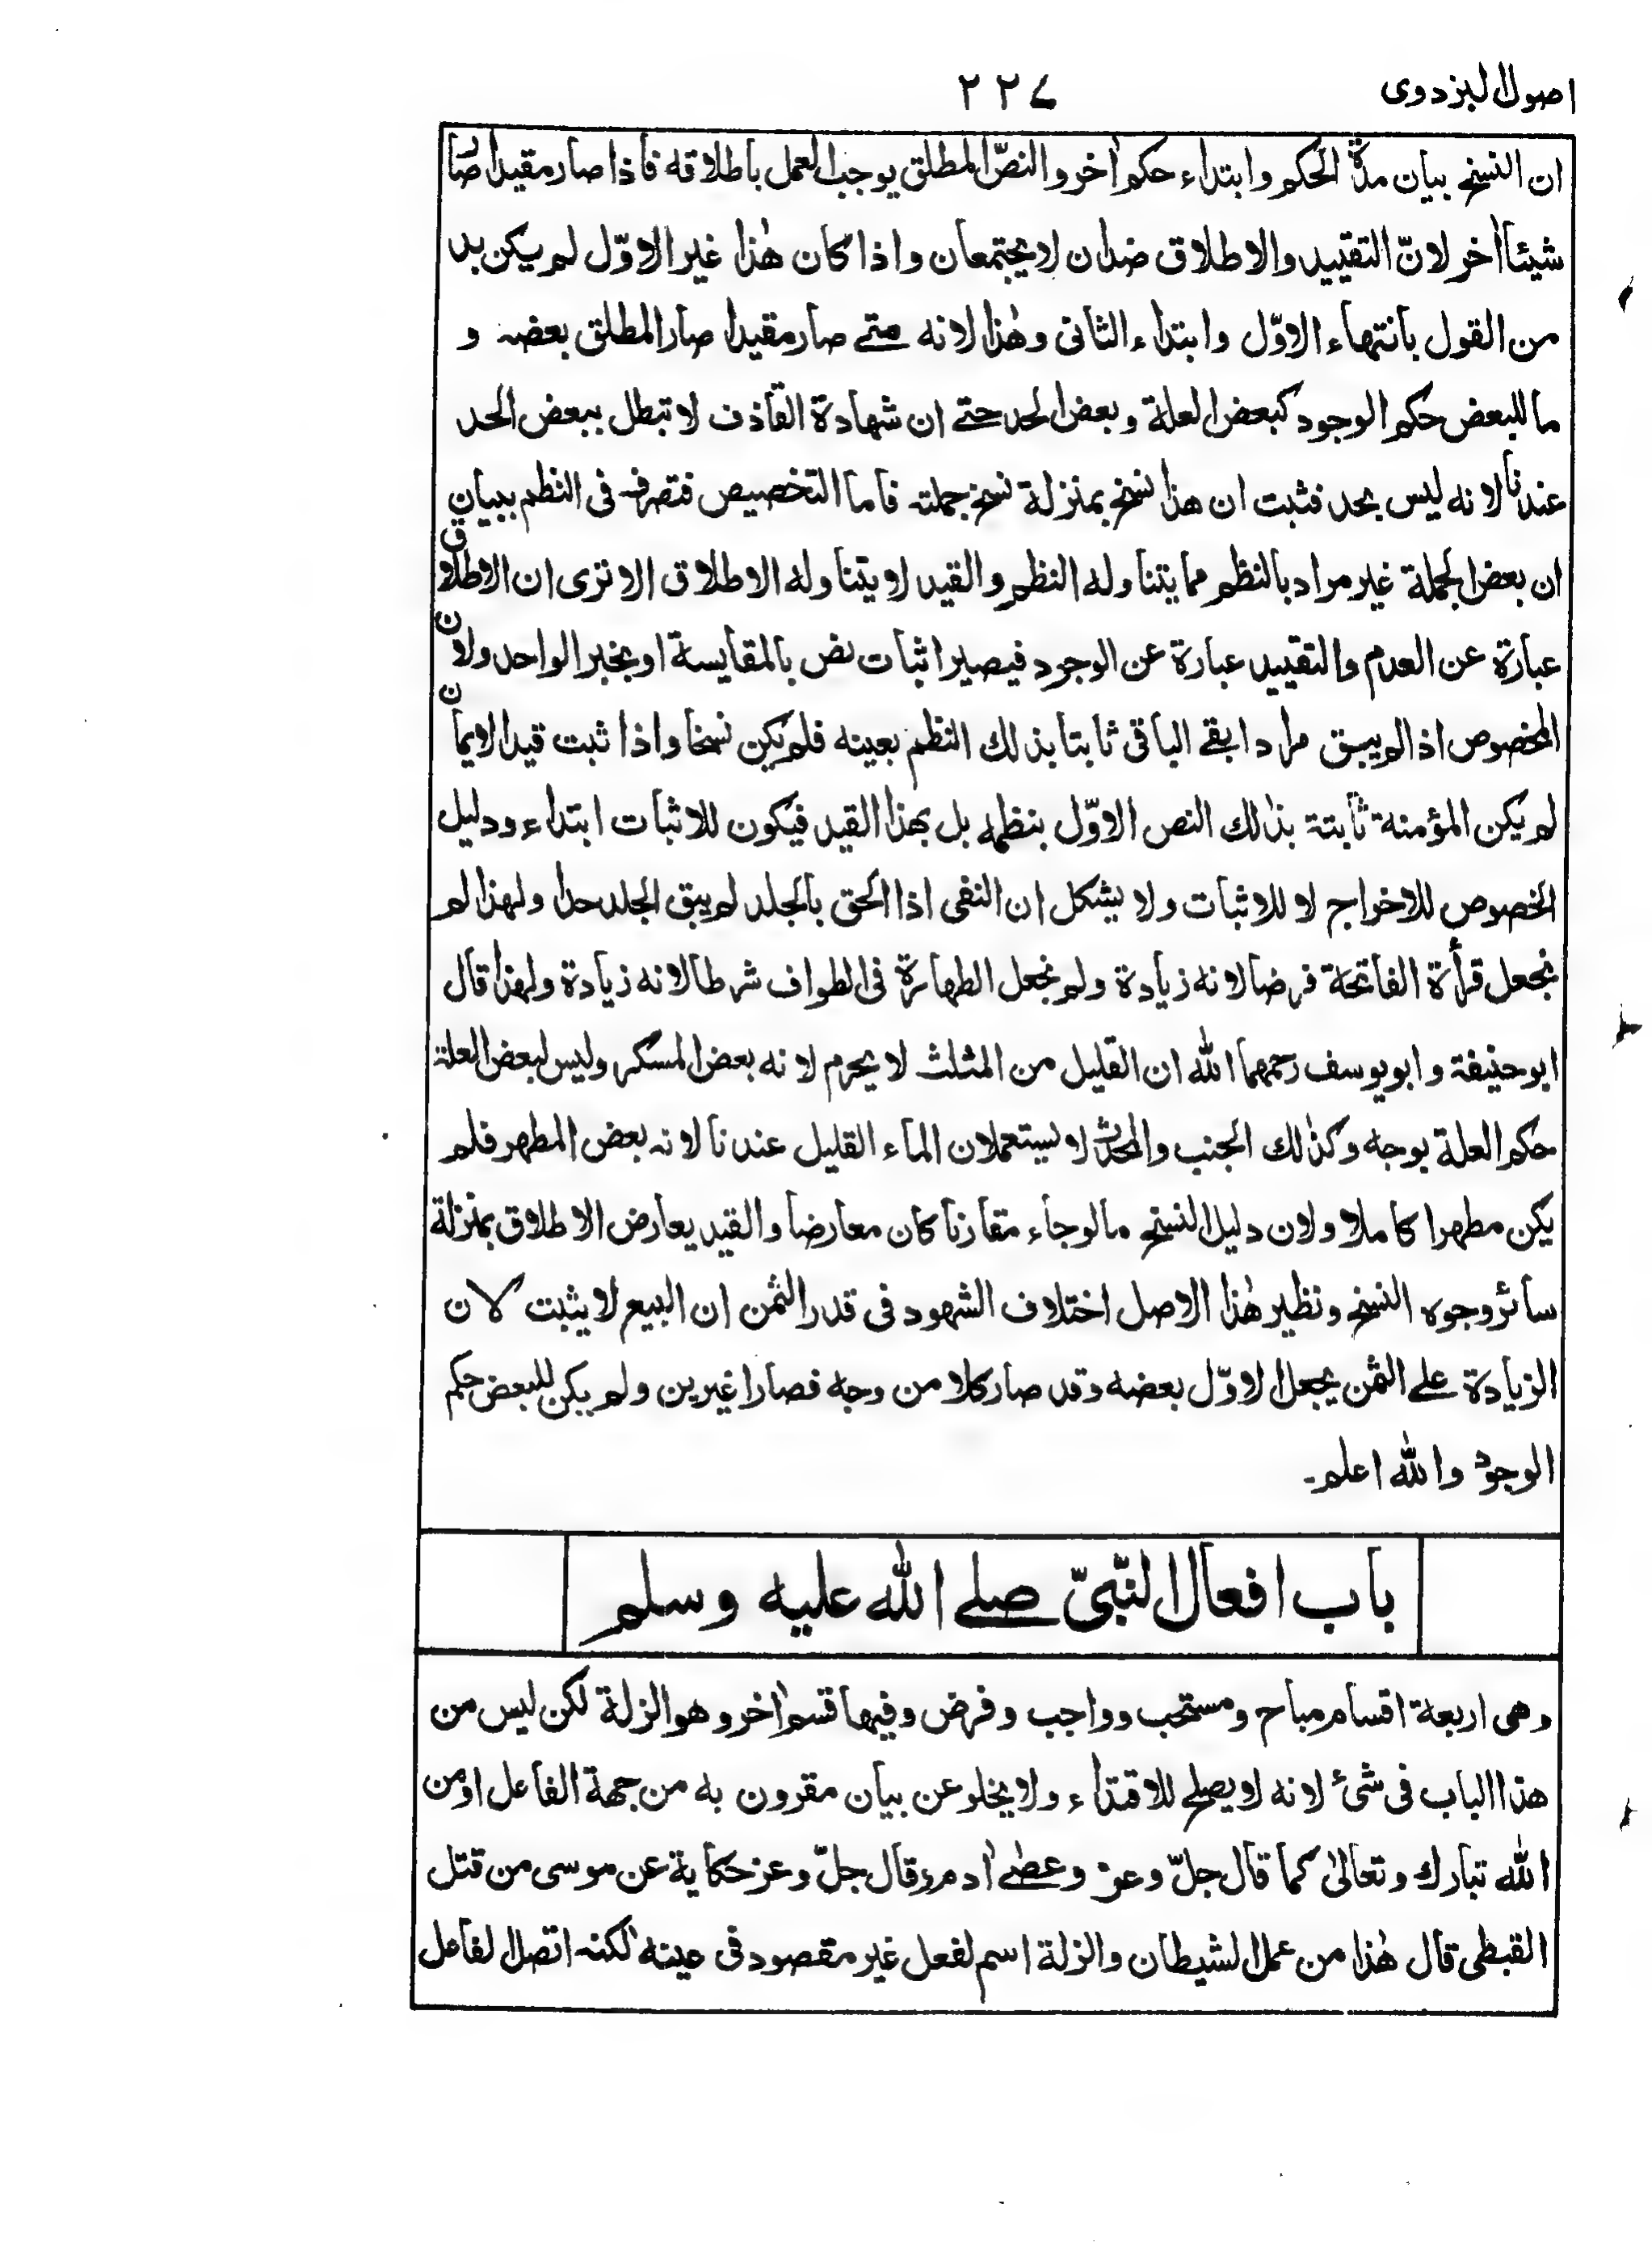 اصول البزدوی
۲۲۷
ان النسخ بیان مدۃ الحکم وابتداء حکم اٰخر والنصّ المطلق یوجب العمل باطلاقه فاذا صار مقیدا صار
شیئا اٰخر لانّ التقیید والاطلاق ضدان لا یجتمعان واذا کان هٰذا غیر الاوّل لم یکن بد
من القول بانتهاء الاوّل وابتداء الثانی وهٰذا لانه متے صار مقیدا صار المطلق بعضه و
ما للبعض حکم الوجود کبعض العلة وبعض الحد حتے ان شهادة القاذف لا تبطل ببعض الحد
عندنا لانه لیس بحد فثبت ان هذا نسخ بمنزلة نسخ جملته فاما التخصیص فتصرف فی النظم ببیان
ان بعض الجملة غیر مراد بالنظم مما یتناوله النظم والقید لا یتناوله الاطلاق الا تری ان الاطلاق
عبارة عن العدم والتقیید عبارة عن الوجود فیصیر اثبات نص بالمقایسة او بخبر الواحد ولان
المخصوص اذا لم یبق مرادا بقے الباقی ثابتا بذلك النظم بعینه فلم یکن نسخا واذا ثبت قید الایمان
لم یکن المؤمنة ثابتة بذٰلك النص الاوّل بنظمه بل بهذا القید فیکون للاثبات ابتداء ودلیل
الخصوص للاخراج لا للاثبات ولا یشکل ان النفی اذا الحق بالجلد لم یبق الجلد حدا ولهذا لم
نجعل قرأة الفاتحة فرضا لانه زیادة ولم نجعل الطهارة فی الطواف شرطا لانه زیادة ولهذا قال
ابو حنیفة وابو یوسف رحمهما الله ان القلیل من المثلث لا یحرم لانه بعض المسکر ولیس لبعض العلة
حکم العلة بوجه وکذٰلك الجنب والمحدث لا یستعملان الماء القلیل عندنا لانه بعض المطهر فلم
یکن مطهرا کاملا ولان دلیل النسخ ما لو جاء مقارنا کان معارضا والقید یعارض الاطلاق بمنزلة
سائر وجوه النسخ ونظیر هٰذا الاصل اختلاف الشهود فی قدر الثمن ان البیع لا یثبت لان
الزیادة علے الثمن یجعل الاوّل بعضه وقد صار کلا من وجه فصارا غیرین ولم یکن للبعض حکم
الوجود والله اعلم۔
باب افعال النّبیّ صلے الله علیه وسلم
وهی اربعة اقسام مباح ومستحب وواجب وفرض وفیها قسم اٰخر وهو الزلة لکن لیس من
هذا الباب فی شئ لانه لا یصلح للاقتداء ولا یخلو عن بیان مقرون به من جهة الفاعل او من
الله تبارك وتعالیٰ کما قال جلّ وعز وعصٰے اٰدم ربه وقال جلّ وعز حکایة عن موسی من قتل
القبطی قال هٰذا من عمل الشیطان والزلة اسم لفعل غیر مقصود فی عینه لٰکنه اتصل لفاعل